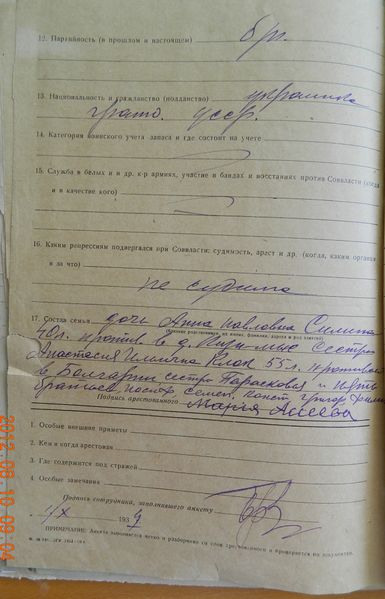 12. Партийность (в прошлом и настоящем) б/п.
13. Национальность и гражданство (подданство) украинка
гражд. УССР.
14. Категория воинского учета запаса и где состоит на учете
15. Служба в белых и др. к-р армиях, участие в бандах и восстаниях против Соввласти (когда
и в качестве кого)
16. Каким репрессиям подвергался при Соввласти: судимость, арест и др. (когда, каким органом
и за что)
не судима
17. Состав семьи дочь Анна Павловна
40 л. прожив. в д. сестра
Анастасия Ильична 55 л. проживает
в Болгарии сестра Парасковья и пять
братьев
Подпись арестованного Мария
1. Особые внешние приметы
2. Кем и когда арестован
3. Где содержится под стражей
4. Особые замечания
Подпись сотрудника, заполнившего анкету
193
ПРИМЕЧАНИЕ: Анкета заполняется четко и разборчиво со слов арестованного и проверяется по документам.
2012-08-10 09:04